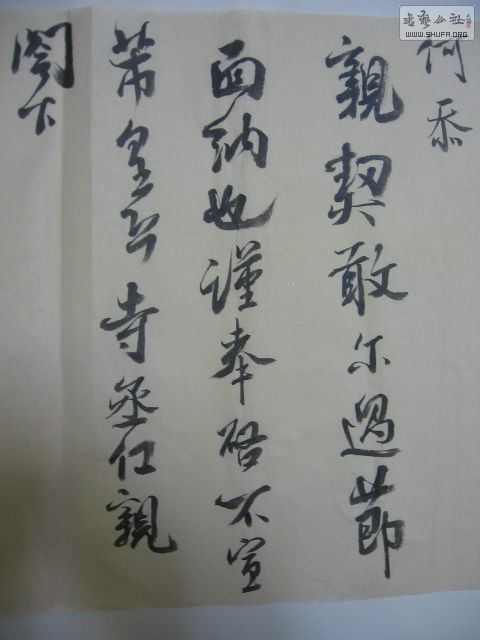 何忝
親契敢尔過節
面納也謹奉啓不宣
芾皇恐寺丞仁親
閣下
書藝公社
WWW.SHUFA.ORG